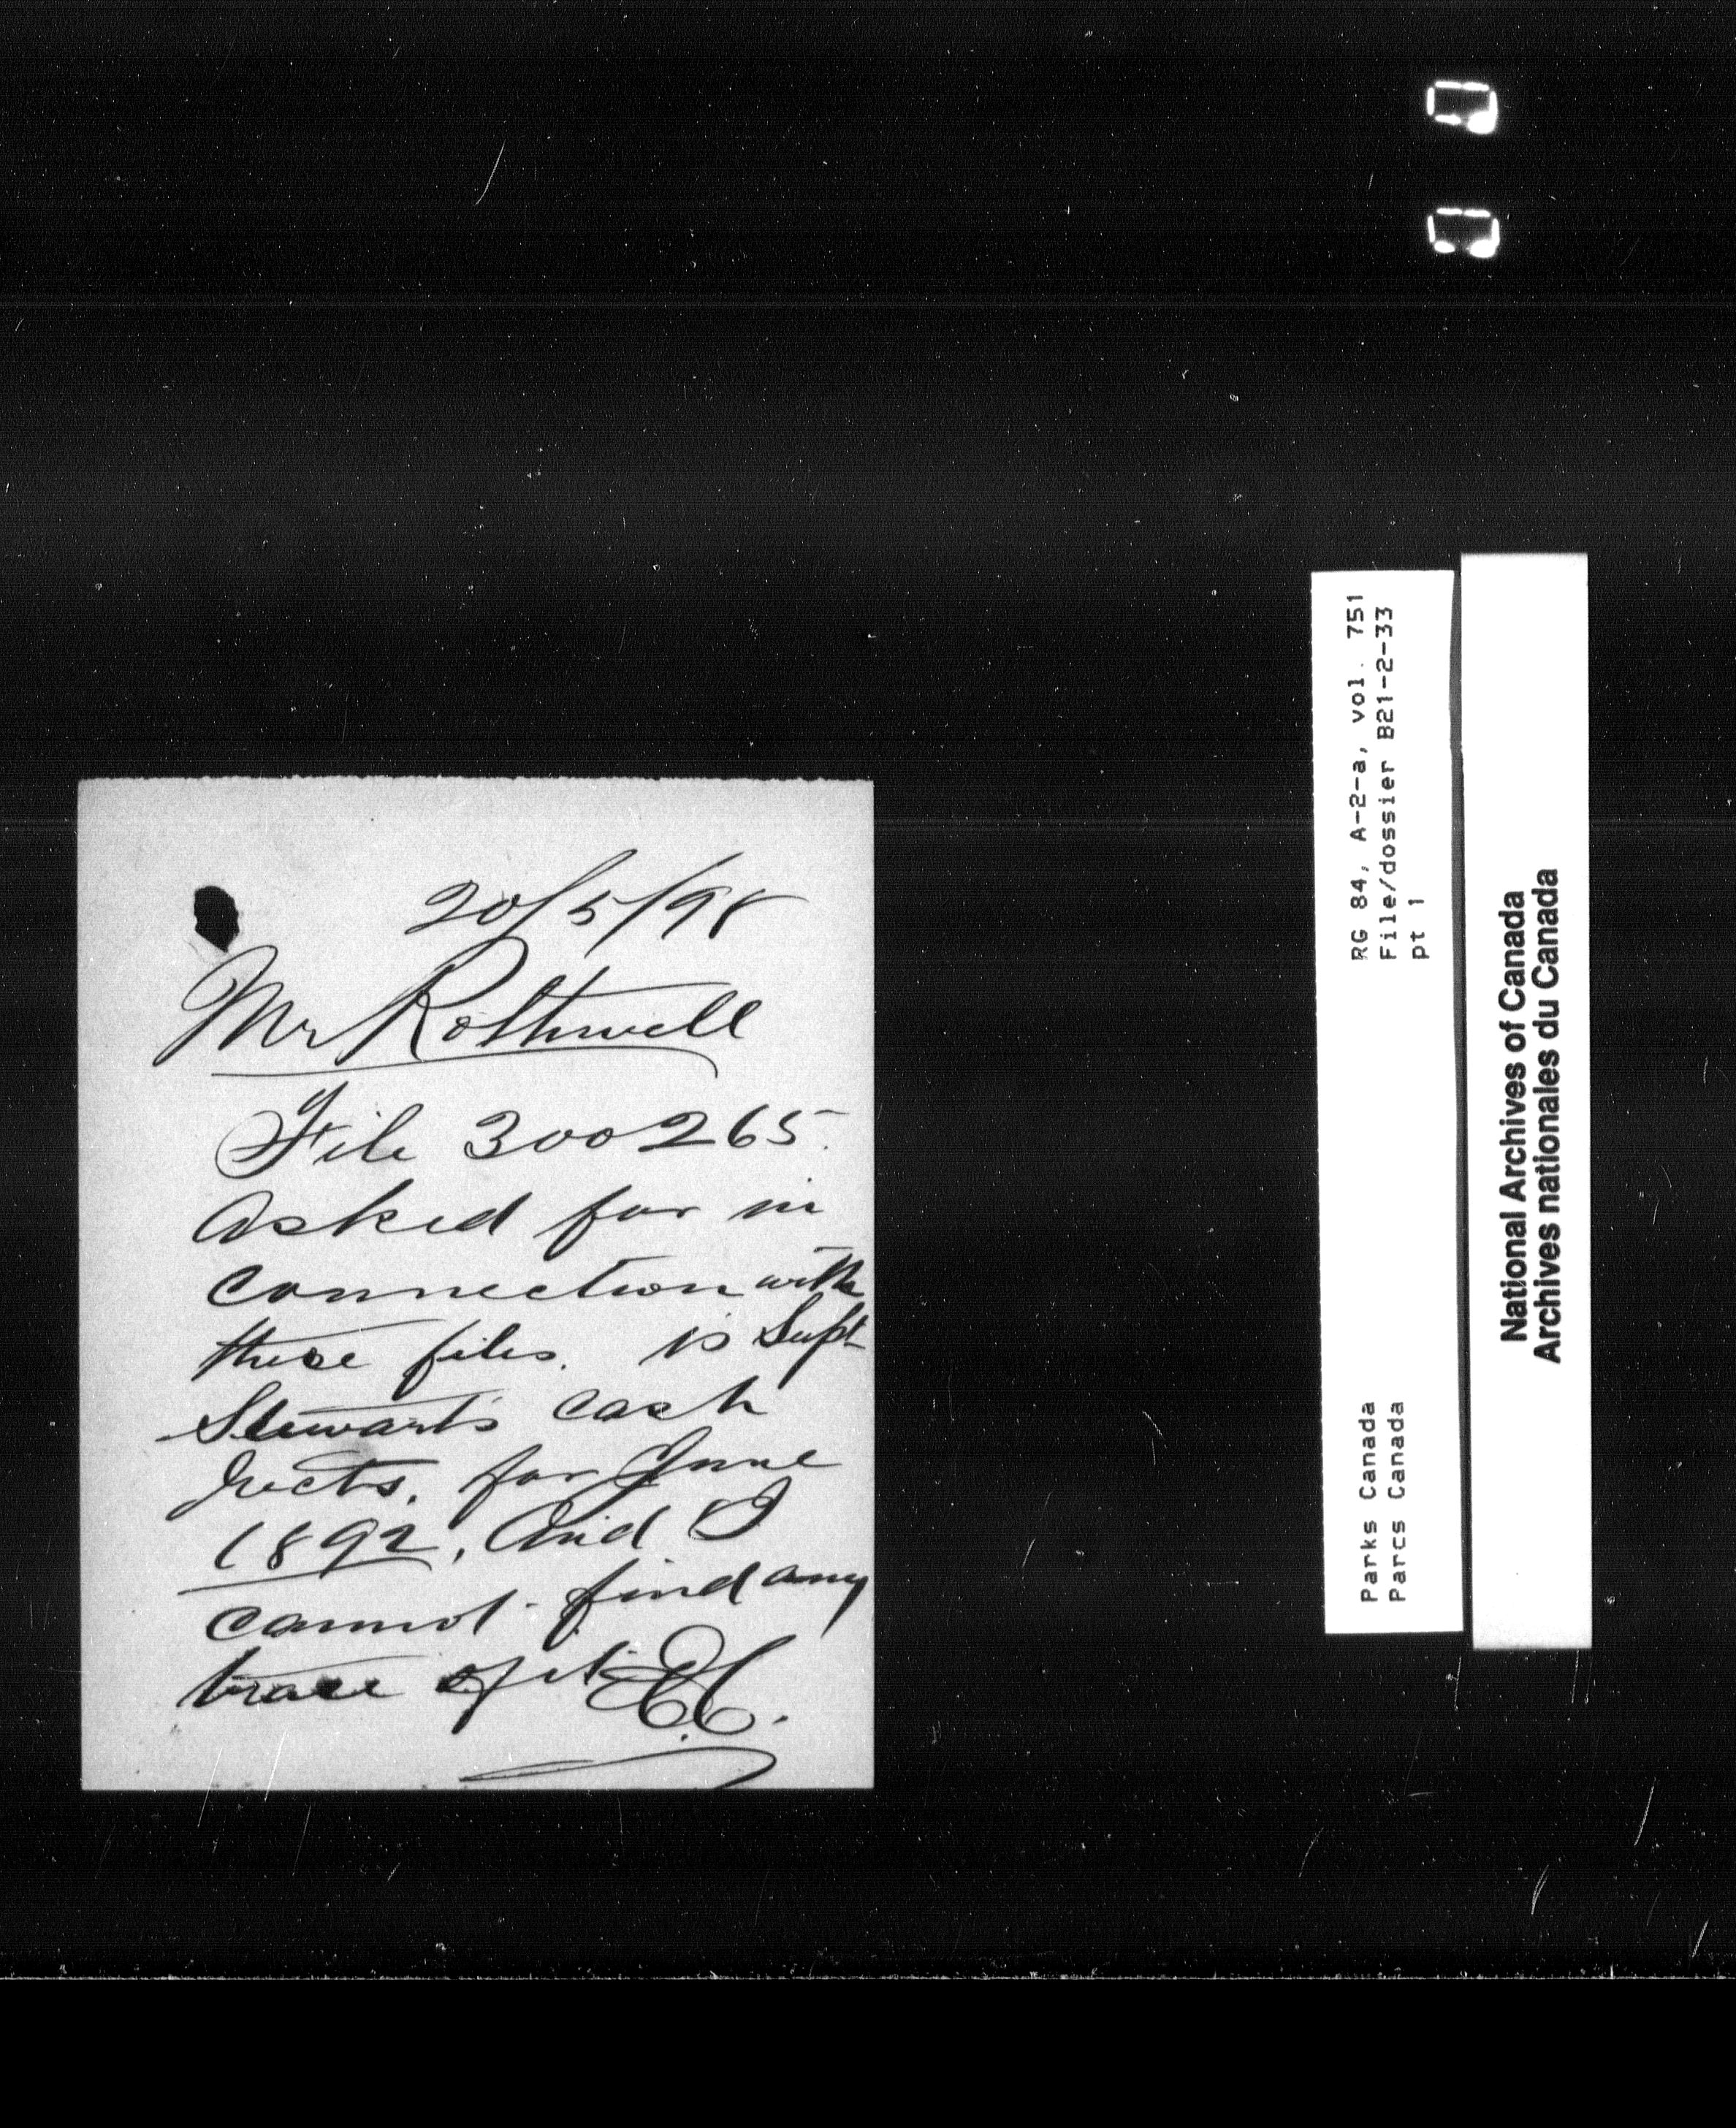 20/5/98
Mr Rothwell
File 300265.
Asked for in
connection with
these files. is Supt
Stewart's cash
for June
1892, And I
cannot find any
trace of it
RG 84, A-2-a, vol. 751
File/dossier B21-2-33
pt 1
Parks Canada
Parcs Canada
National Archives of Canada
Archives nationales du Canada